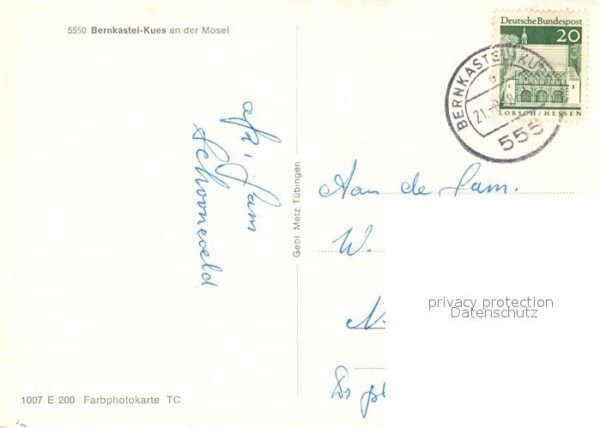 5550 Bernkastel-Kues an der Mosel
Deutsche Bundespost
20
LORSCH/HESSEN
BERNKASTEL-KUES
555
afz. Fam
Schooneveld
Geor Metz Tübingen
Aan de Fam.
W.
N.
privacy protection
Datenschutz
1007 E 200 Farbphotokarte TC